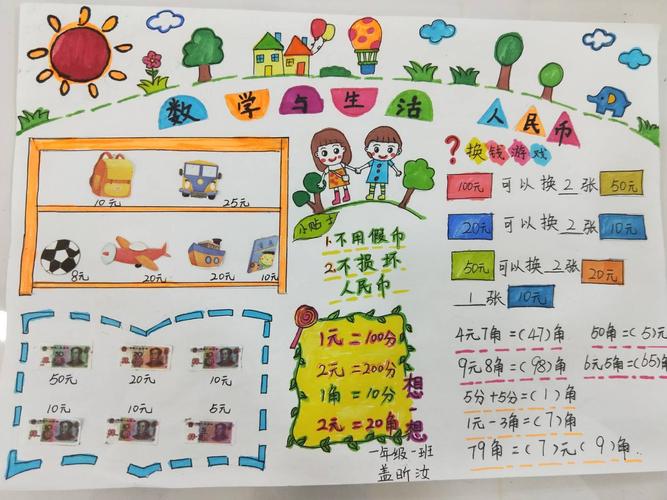 数学与生活
人民币
10元 25元
8元 20元 20元 10元
50元 20元 10元
10元 10元 5元
小贴士
1.不用假币
2.不损坏
人民币
1元=100分
2元=200分
1角=10分
2元=20角
想一想
一年级一班
盖昕汝
?换钱游戏
100元可以换2张50元
20元可以换2张10元
50元可以换2张20元
1张10元
4元7角=(47)角 50角=(5)元
9元8角=(98)角 6元5角=(65)角
5分+5分=(1)角
1元-3角=(7)角
79角=(7)元(9)角